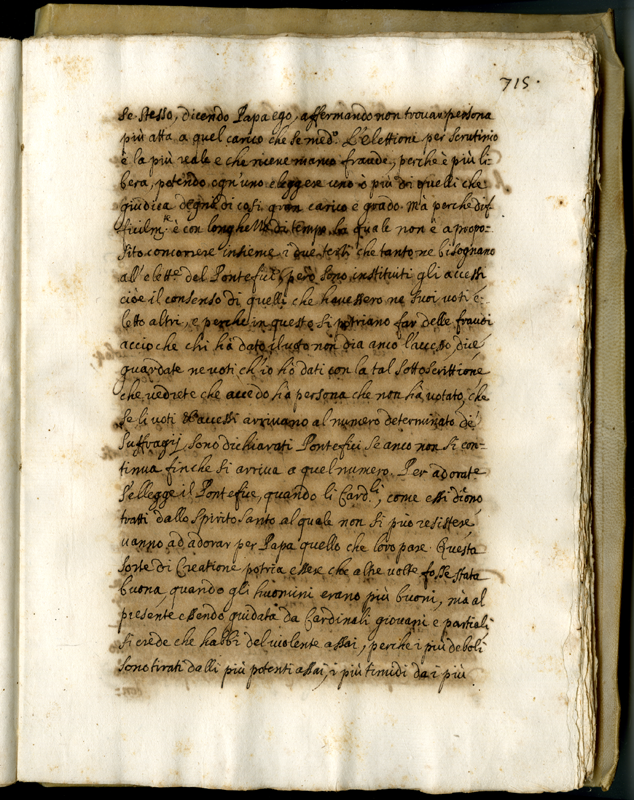 715.
se stesso, dicendo Papa ego, affermando non trovar persona
più atta a quel carico che se med.º L'elettione per scrutinio
è la più reale e che riceve manco fraude, perche è più li
bera, potendo ogn'uno eleggere uno ò più di quelli che
giudica degni di cosi gran carico e grado. Mà perche dif
ficilm.te è con longhe di tempo la quale non è a propo-
sito concorrere insieme i due terzi che tanto ne bisognano
all' elett.e del Pontefice, però sono instituiti gli accessi
cioè il consenso di quelli che havessero ne suoi voti e
letto altri, e perche in questo si potriano far delle fraudi
acciò che chi hà dato il voto non dia anco l'accesso dice
guardate ne voti ch'io hò dati con la tal sottoscrittione
che vedrete che accedo hà persona che non hà votato, che
se li voti accessi arrivano al numero determinato de
suffragij, sono dichiarati Pontefici se anco non si con-
tinua finche si arriva a quel numero. Per adorat.e
s'ellegge il Pontefice, quando li Card.li, come essi dicono
tratti dallo Spirito Santo al quale non si può resistere
vanno ad adorar per Papa quello che loro pare. Questa
sorte di Creatione potria essere che altre volte fosse stata
buona, quando gli huomini erano più buoni, mà al
presente essendo guidata da Cardinali giovani e partiali
si crede che habbi del violente assai, perche i più deboli
sono tirati dalli più potenti assai, i più timidi da i più